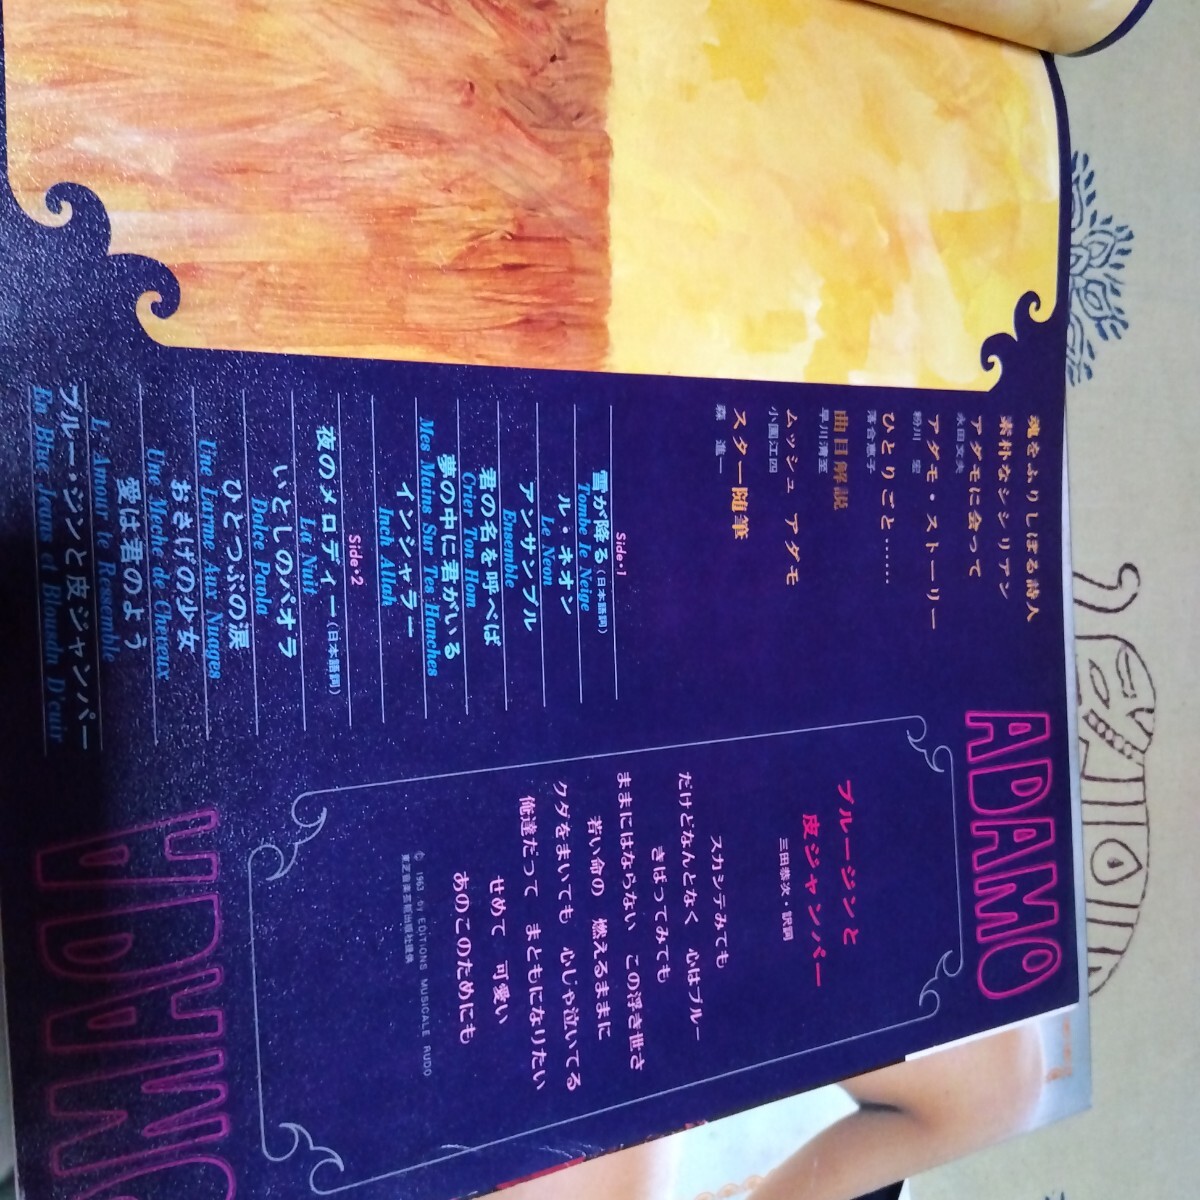 ADAMO
魂をふりしぼる詩人
素朴なシシリアン
アダモに会って
永田文夫
アダモ・ストーリー
粉川 宏
ひとりごと……
落合恵子
曲目解説
早川清至
ムッシュ アダモ
小園江四
スター随筆
森 進一
Side・1
雪が降る(日本語詞)
Tombe le Neige
ル・ネオン
Le Neon
アンサンブル
Ensemble
君の名を呼べば
Crier Ton Hom
夢の中に君がいる
Mes Mains Sur Tes Hanches
インシャラー
Inch Allah
Side・2
夜のメロディー(日本語詞)
La Nuit
いとしのパオラ
Dolce Paola
ひとつぶの涙
Une Larme Aux Nuages
おさげの少女
Une Meche de Cheveux
愛は君のよう
L' Amour te Ressemble
ブルー・ジンと皮ジャンパー
En Blue Jeans et Blouson D'cuir
ブルージンと
皮ジャンパー
三田恭次・訳詞
スカシテみても
だけどなんとなく 心はブルー
きばってみても
ままにはならない この浮き世さ
若い命の 燃えるままに
クダをまいても 心じゃ泣いてる
俺達だって まともになりたい
せめて 可愛い
あのこのためにも
© 1963 by EDITIONS MUSICALE RUDO
東芝音楽芸能出版社提供
ADAMO